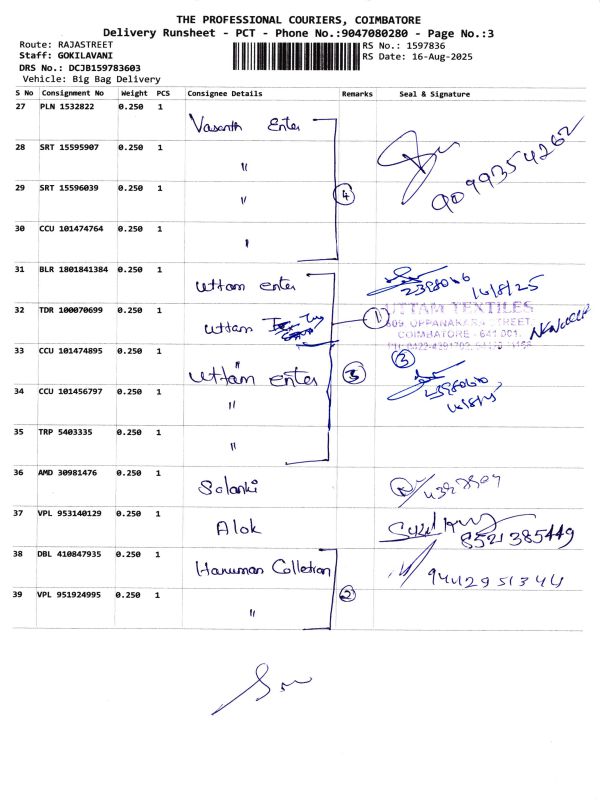 THE PROFESSIONAL COURIERS, COIMBATORE
Delivery Runsheet - PCT - Phone No.:9047080280 - Page No.:3
Route: RAJASTREET
Staff: GOKILAVANI
DRS No.: DCJB159783603
Vehicle: Big Bag Delivery
RS No.: 1597836
RS Date: 16-Aug-2025
S No Consignment No Weight PCS Consignee Details Remarks Seal & Signature
27 PLN 1532822 0.250 1 Vasanth Enter
28 SRT 15595907 0.250 1 "
9099354262
29 SRT 15596039 0.250 1 " 4
30 CCU 101474764 0.250 1 "
31 BLR 1801841384 0.250 1 Uttam enter 16/8/25
32 TDR 100070699 0.250 1 Uttam 1
UTTAM TEXTILES
COIMBATORE - 641 001.
33 CCU 101474895 0.250 1 " Uttam enter 3 3
34 CCU 101456797 0.250 1 "
16/8/25
35 TRP 5403335 0.250 1 "
36 AMD 30981476 0.250 1 Solanki
37 VPL 953140129 0.250 1 Alok 8521385449
38 DBL 410847935 0.250 1 Hanuman Colletion 9442951344
39 VPL 951924995 0.250 1 " 2